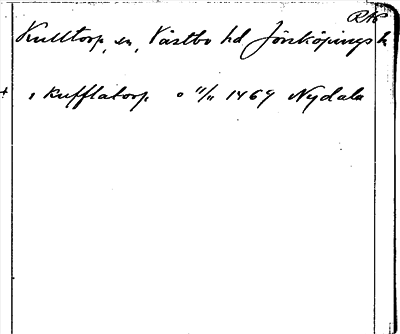 RAP
Kulltorp, sn, Västbo hd Jönköpings l.
+ , kufflatorp o 11/11 1469 Nydala